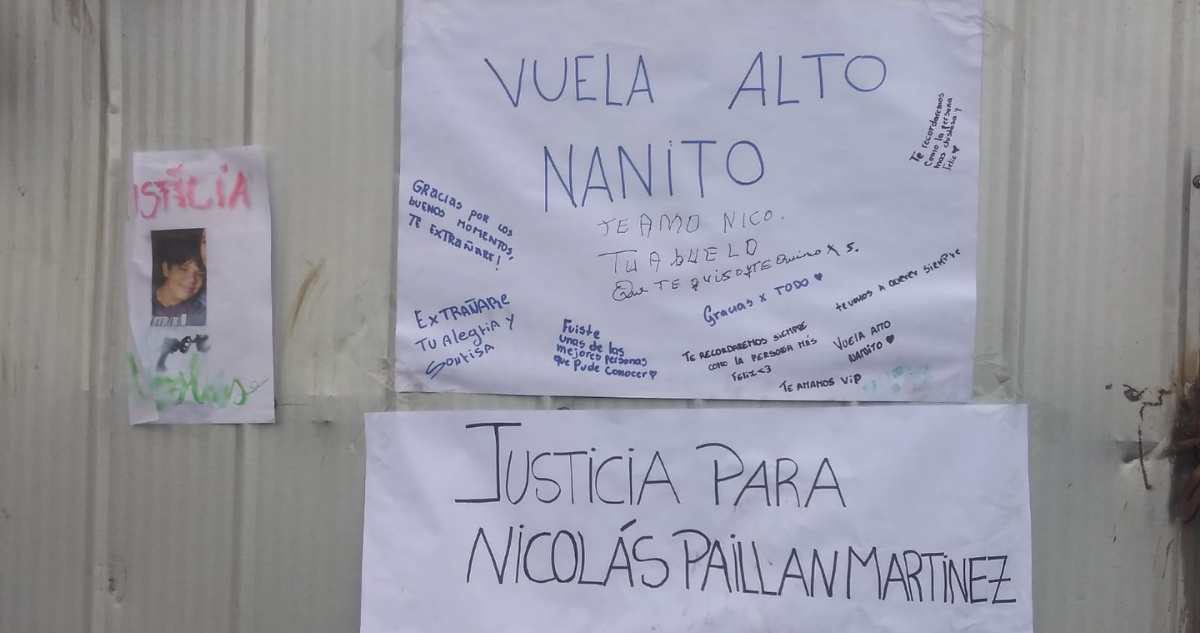 USTICIA
por
VUELA ALTO
NANITO
TE AMO NICO.
TU ABUELO
Que TE QUISO Y TE Quiero X 5.
Gracias x TODO ♥
GRACIAS POR LOS
BUENOS MOMENTOS,
TE EXTRAÑARE!
EXTRAÑARE
TU Alegria Y
SONRISA
Fuiste
unas de las
mejores personas
que Pude Conocer♥
TE RECORDAREMOS SIEMPRE
COMO LA PERSONA MÁS
FELIZ<3
TE AMAMOS VIP
VUELA ALTO
NANITO ♥
TE VAMOS A QUERER SIEMPRE
Te recordaremos
Como la persona
mas chistosa y
feliz♥
JUSTICIA PARA
NICOLÁS PAILLAN MARTINEZ